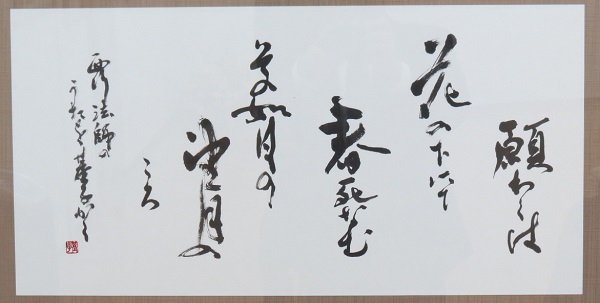 願わくは
花の下にて
春死なむ
その如月の
望月の
ころ
西行法師の
うたを かく